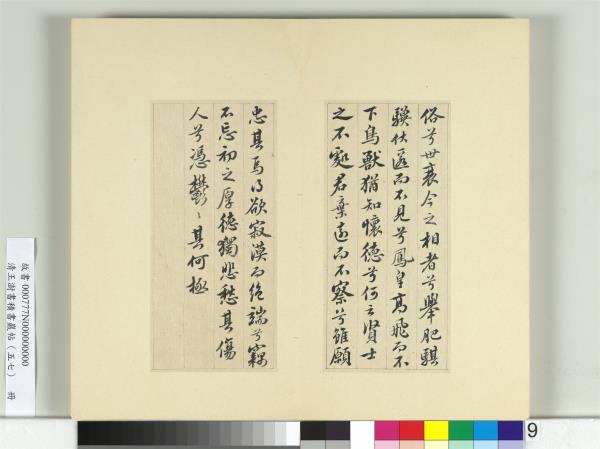 俗兮世衰今之相者兮舉肥騏
驥伏匿而不見兮鳳皇高飛而不
下鳥獸猶知懷德兮何云賢士
之不處君棄遠而不察兮雖願
忠其焉得欲寂漠而絕端兮竊
不忘初之厚德獨悲愁其傷
人兮馮鬱〻其何極
故書000777N000000000
清王澍書積書巖帖（五七） 冊
9